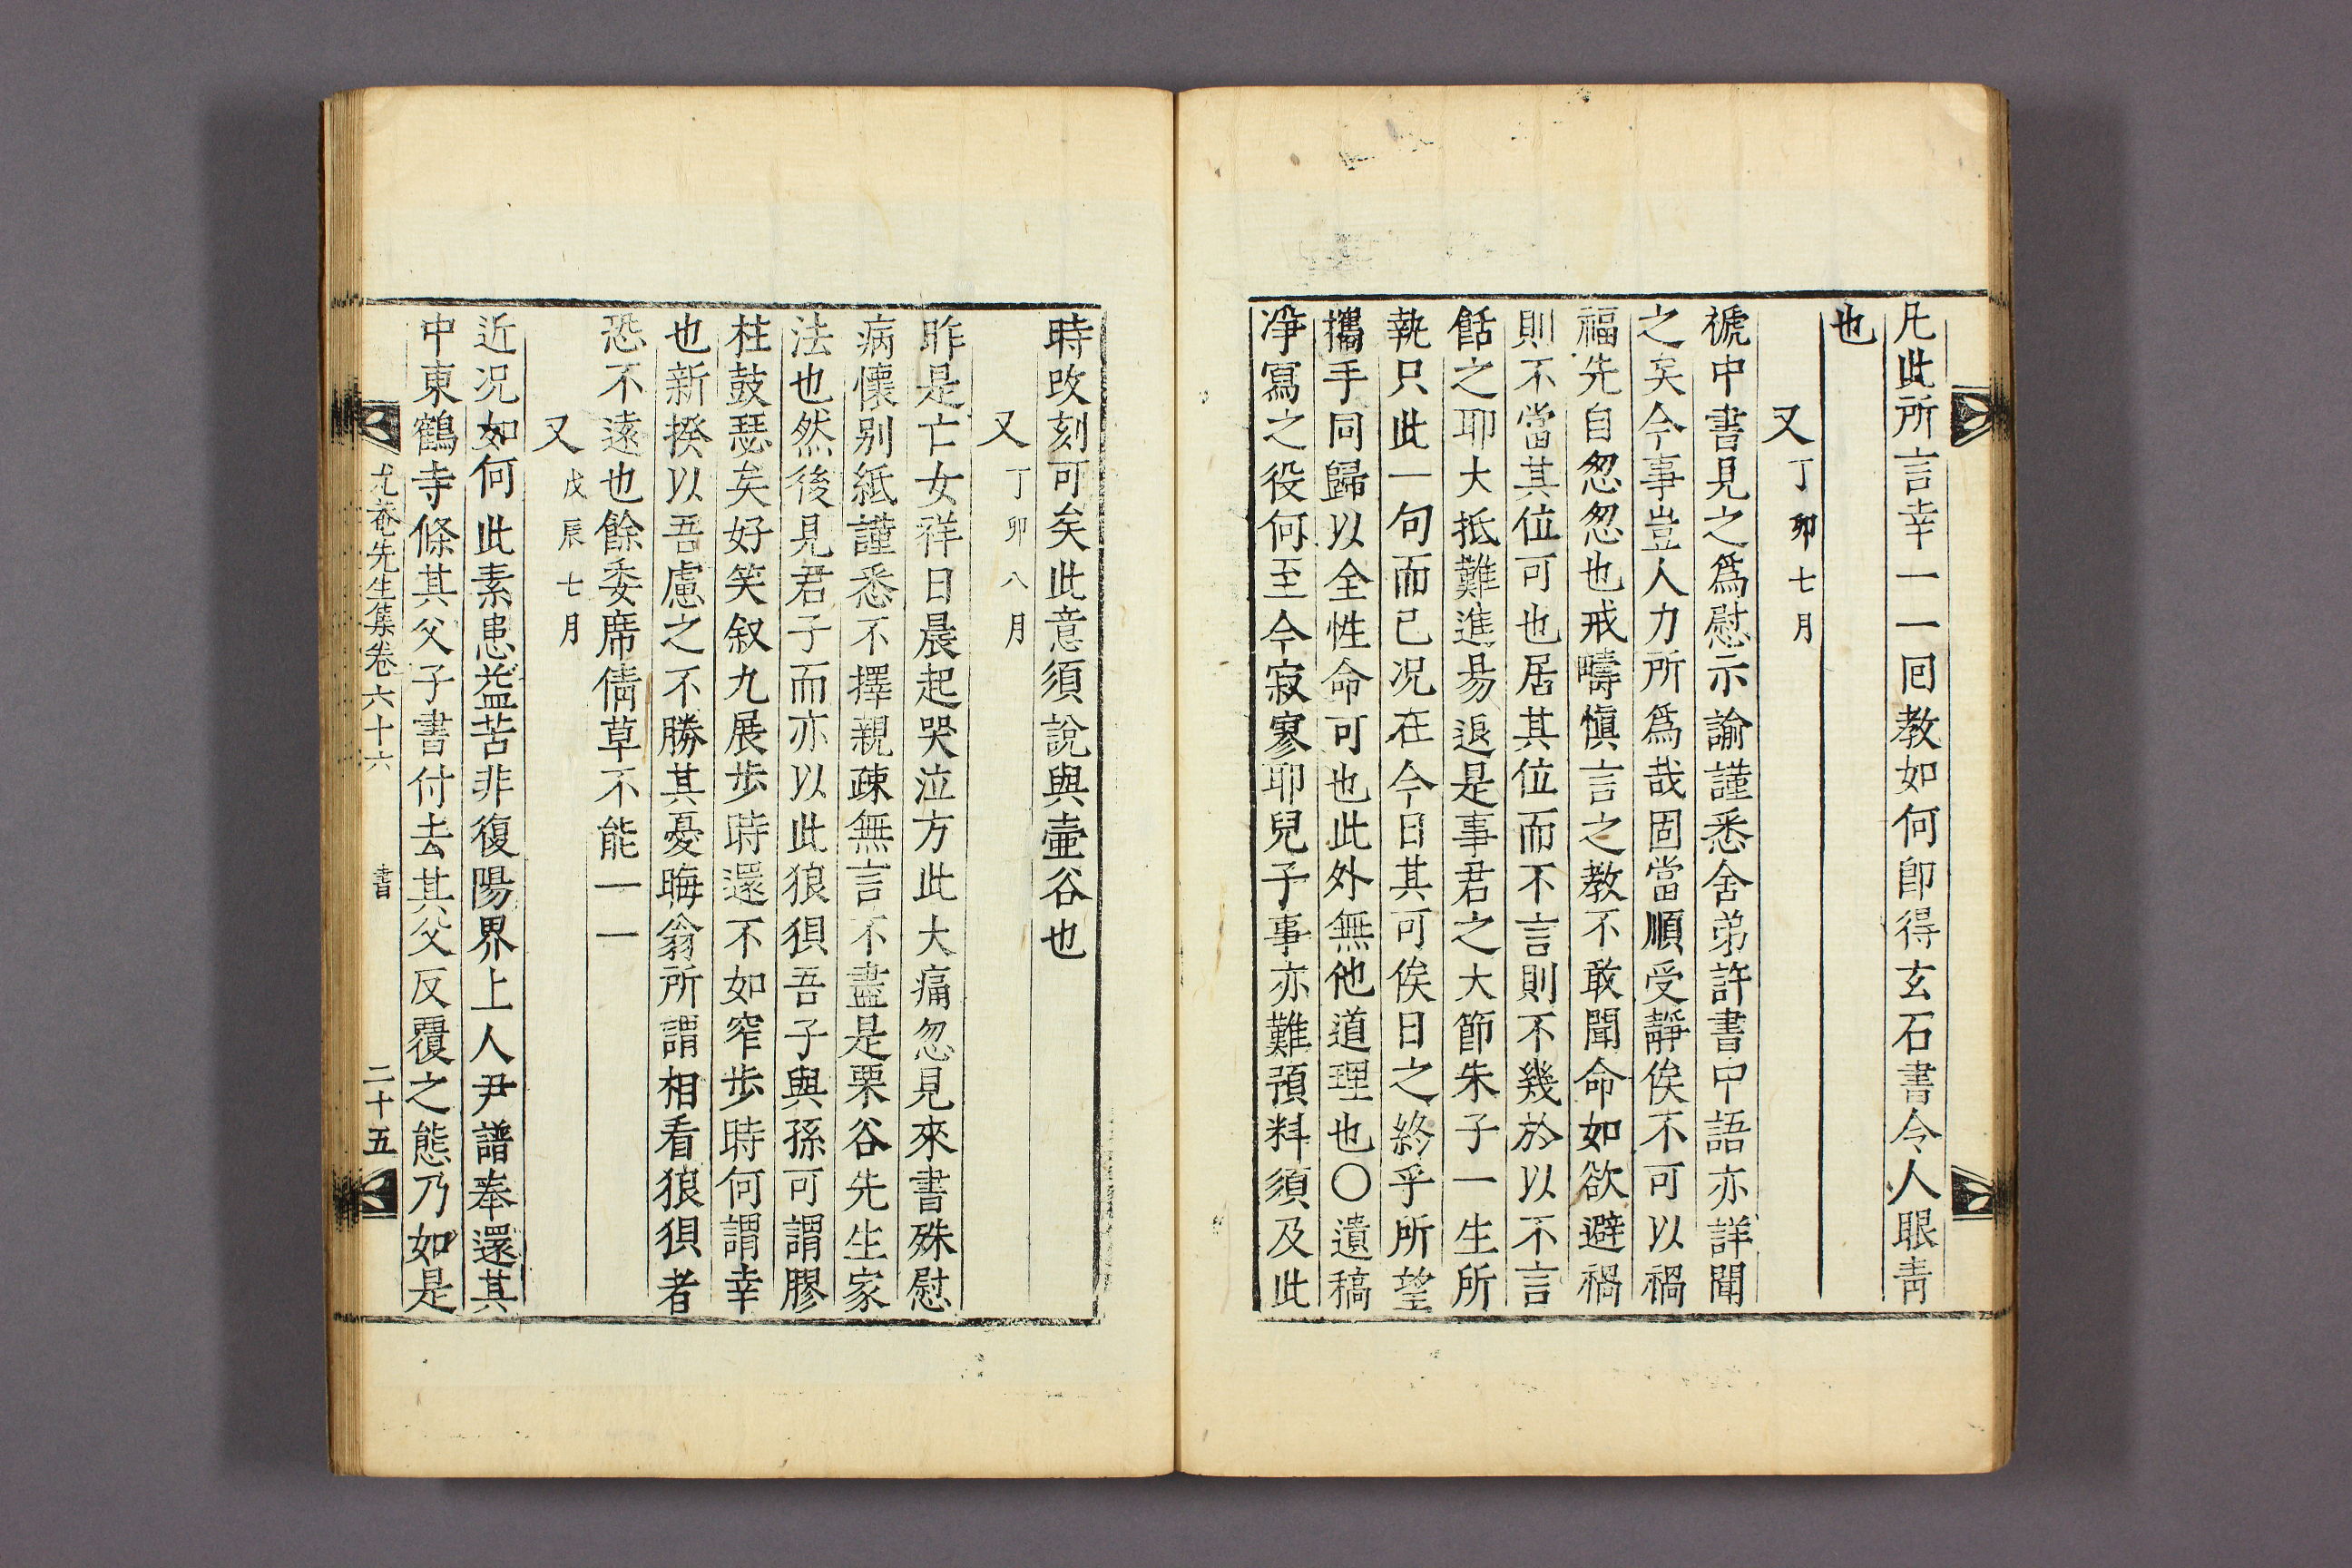 凡此所言幸一一回教如何卽得玄石書令人眼靑
也
又丁卯七月
褫中書見之爲慰示諭謹悉舍弟許書中語亦詳聞
之矣今事豈人力所爲哉固當順受靜俟不可以禍
福先自怱怱也戒疇愼言之教不敢聞命如欲避禍
則不當其位可也居其位而不言則不幾於以不言
餂之耶大抵難進易退是事君之大節朱子一生所
執只此一句而已况在今日其可俟日之終乎所望
攜手同歸以全性命可也此外無他道理也〇遺稿
淨寫之役何至今寂寥耶兒子事亦難預料須及此
時改刻可矣此意須說與壷谷也
又丁卯八月
昨是亡女祥日晨起哭泣方此大痛忽見來書殊慰
病懷别紙謹悉不擇親疎無言不盡是栗谷先生家
法也然後見君子而亦以此狼狽吾子與孫可謂膠
柱鼓瑟矣好笑叙九展步時還不如窄步時何謂幸
也新揆以吾慮之不勝其憂晦翁所謂相看狼狽者
恐不遠也餘委席倩草不能一一
又戊辰七月
近况如何此素患益苦非復陽界上人尹譜奉還其
中東鶴寺條其父子書付去其父反覆之態乃如是
尤菴先生集卷六十六 書 二十五